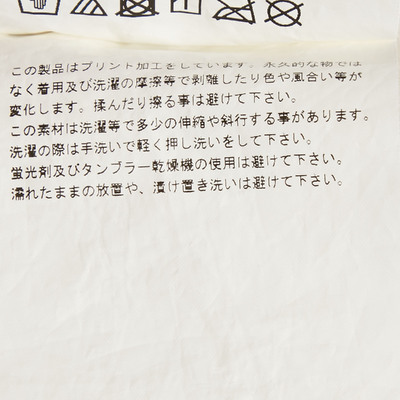 この製品はプリント加工をしています。永久的な物では
なく着用及び洗濯の摩擦等で剥離したり色や風合い等が
変化します。揉んだり擦る事は避けて下さい。
この素材は洗濯等で多少の伸縮や斜行する事があります。
洗濯の際は手洗いで軽く押し洗いをして下さい。
蛍光剤及びタンブラー乾燥機の使用は避けて下さい。
濡れたままの放置や、漬け置き洗いは避けて下さい。